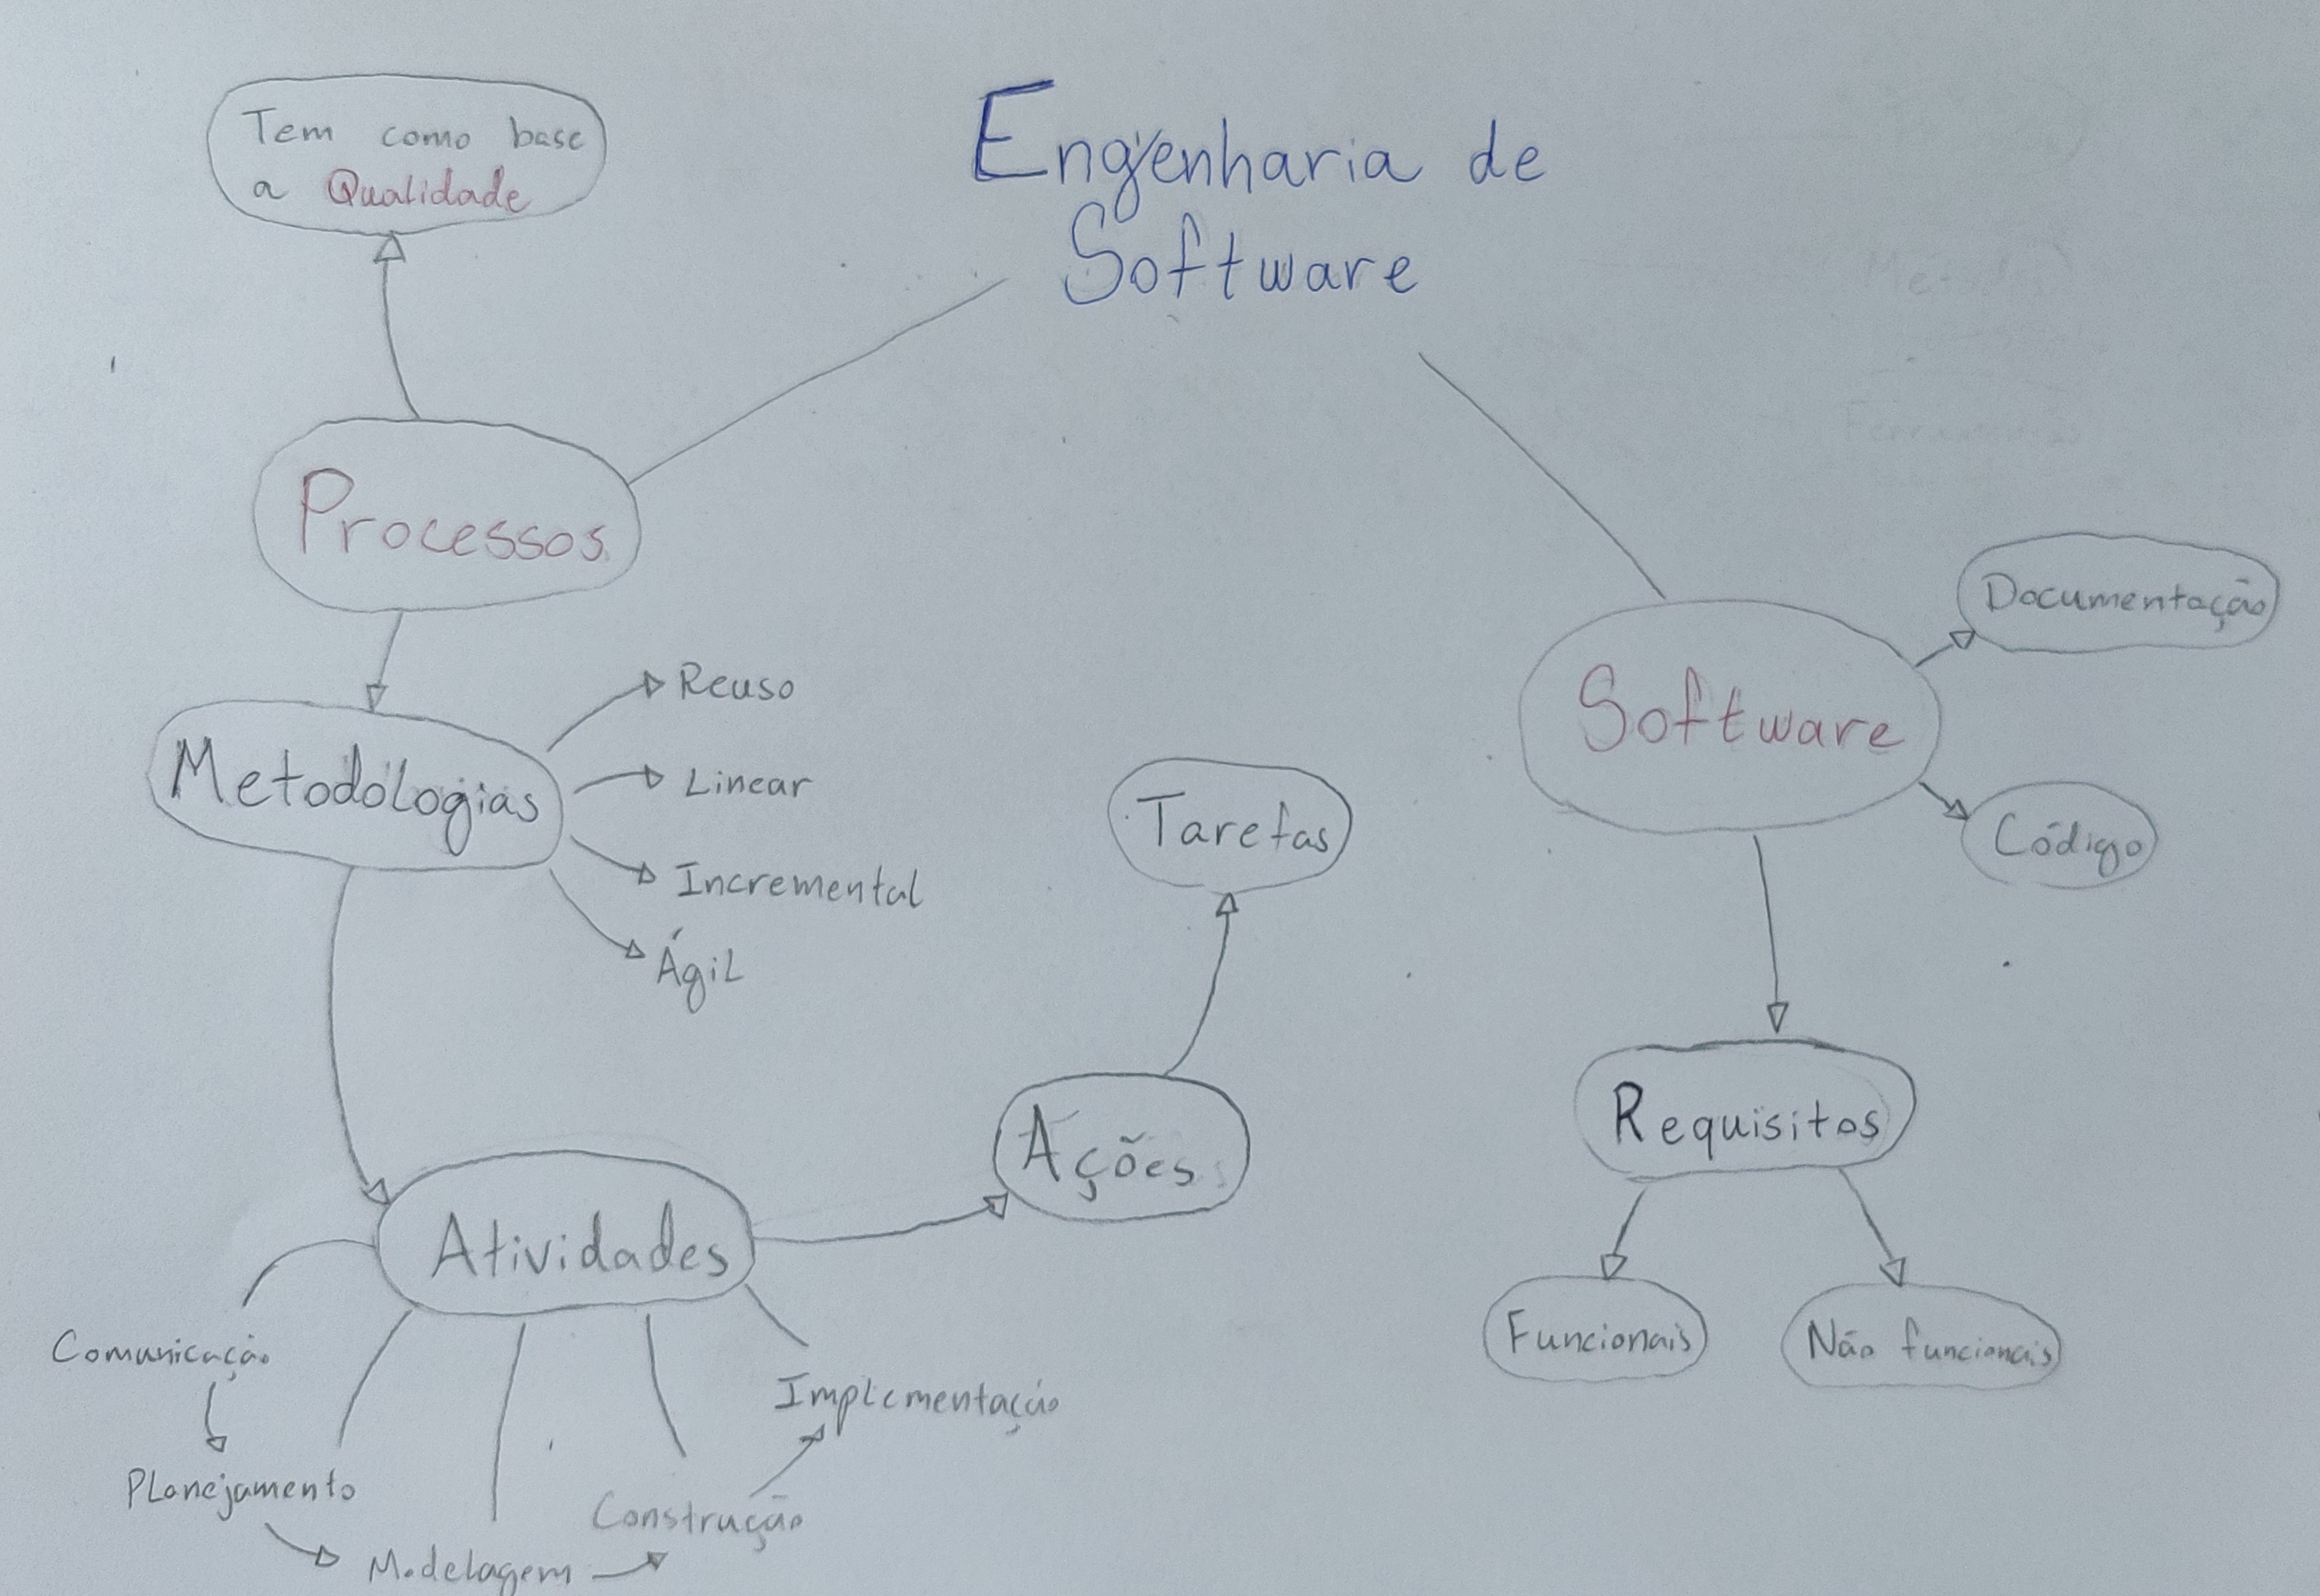 Engenharia de
Software
Tem como base
a Qualidade
Processos
Metodologias
Reuso
Linear
Incremental
Ágil
Atividades
Comunicação
Planejamento
Modelagem
Construção
Implementação
Ações
Tarefas
Software
Documentação
Código
Requisitos
Funcionais
Não funcionais